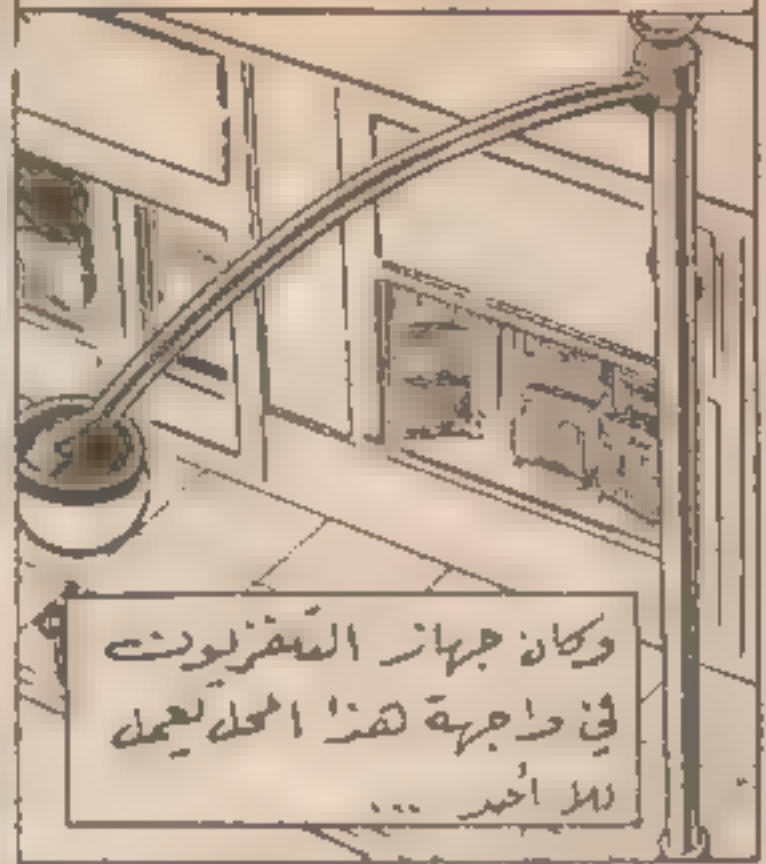 وكان جهاز التلفزيون
في واجهة هذا المحل يعمل
بلا أحد ...